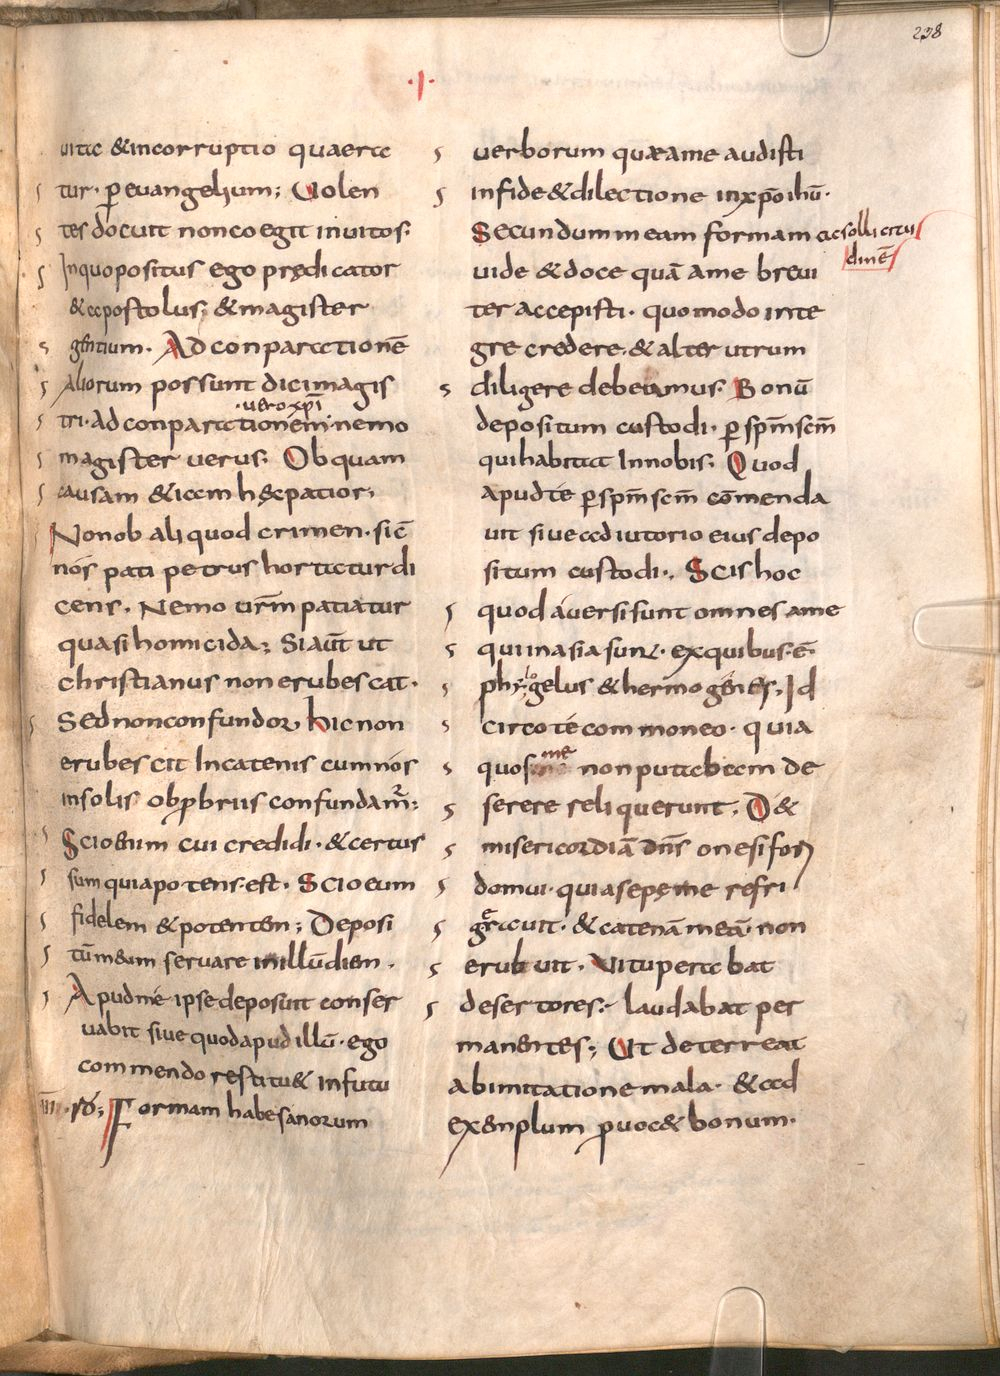 238
·I·
uitae &incorruptio quaerae
tur· p̲euangelium; Uolen
tes docuit noncoegit inuitos·
Inquopositus ego prędicator
&apostolus; &magister
gentium· Adconparationē
Aliorum possunt dicimagis
tri· adconparationem ·uero xp̅i· nemo
magister uerus· Obquam
causam &iam hęcpatior;
Nonob aliquod crimen· sic̄
nós pati petrus hortaturdi
cens· Nemo urm̅ patiatur
quasihomicida; Siaut̄ ut
christianus nonerubescat·
Sednonconfundor, hicnon
erubescit Incatenis cumnós
insolis obp̲briis confundam̄:
Scioenim cui credidi· &certus
sum quiapotens·est· Scioeum
fidelem &potentem; Deposi
tūmeum seruare inillūdiem·
Apudmé ipsedeposuit conser
uabit siue quodapudillū· ego
commendo restitu& infutu
III·ro; Formam habesanorum
uerborum quæame audisti
infide&dilectione inxp̅oihū·
Secundum meam formam acsollicitus
dinē
uide &doce quā ame breui
ter accepisti· quomodo inte
gre credere·&alter utrum
diligere debeamus· Bonū
depositum custodi· p̲ sp̅m̅ sc̅m̅
quihabitat Innobis; Quod
apudté p̲sp̅m̅ sc̅m̅ cōmenda
uit siueadiutorio eius depo
situm custodi·, Scis hoc
quod áuersisunt omnes ame
quiinasia sunt· exquibus·ē·
phygelus &hermogenes, Id
circo té commoneo· quia
quos me nonputabam de
serere reliquerunt; D&
misericordiā dn̅s onesifori
domui· quiasepęme refri
gerauit· &catenā meā· non
erubuit· Uituperabat
desertores; laudabat per
manentes; Ut deterreat
abimitatione mala· &ad
exemplum p̲uoc& bonum·